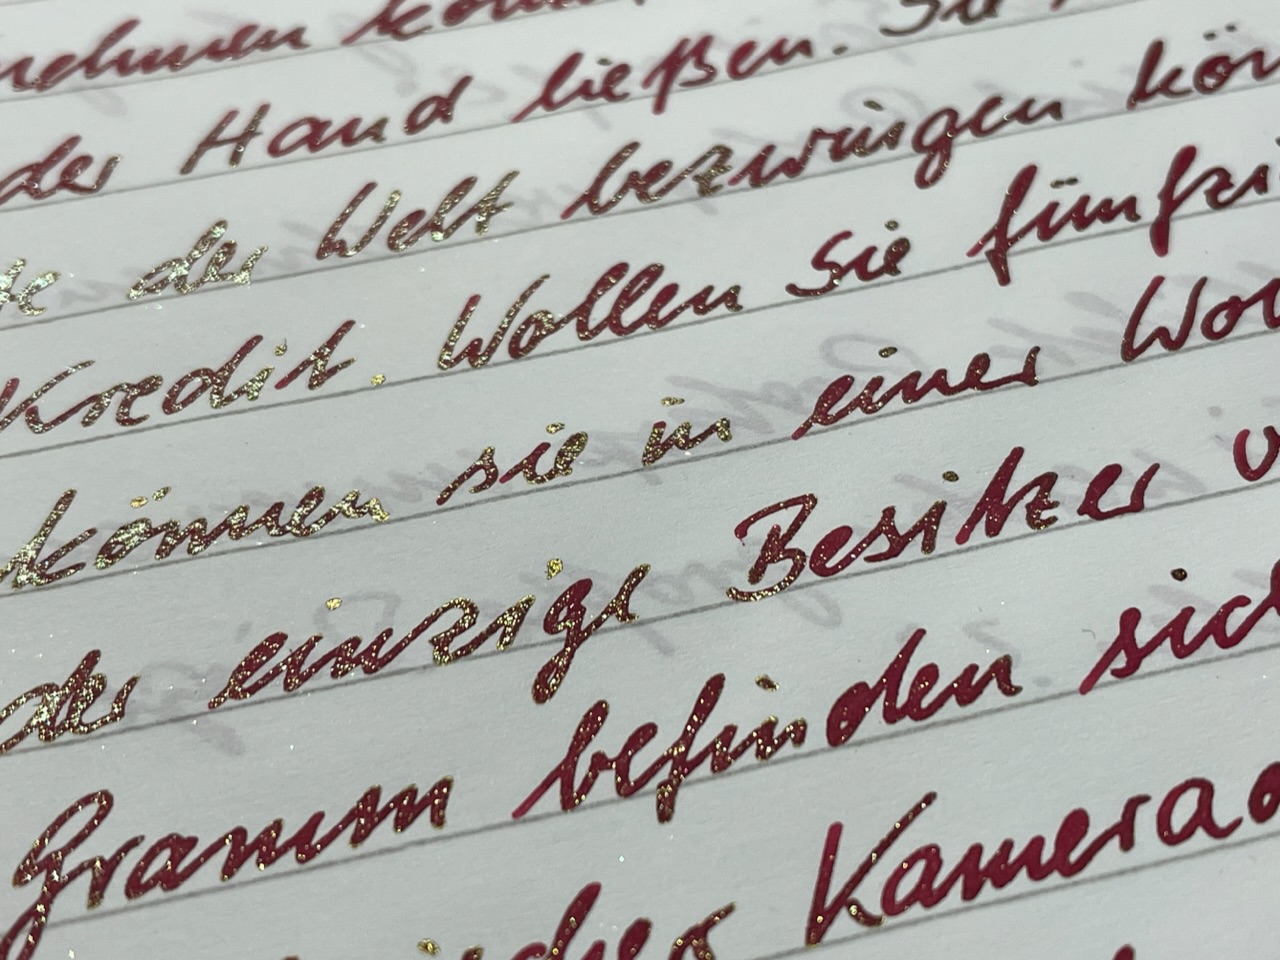 nehmen
der Hand ließen. Sie
der Welt bezwingen kön
Kredit. Wollen Sie fünfzi
können sie in einer Wol
der einzige Besitzer
Gramm befinden sich
Kamerad